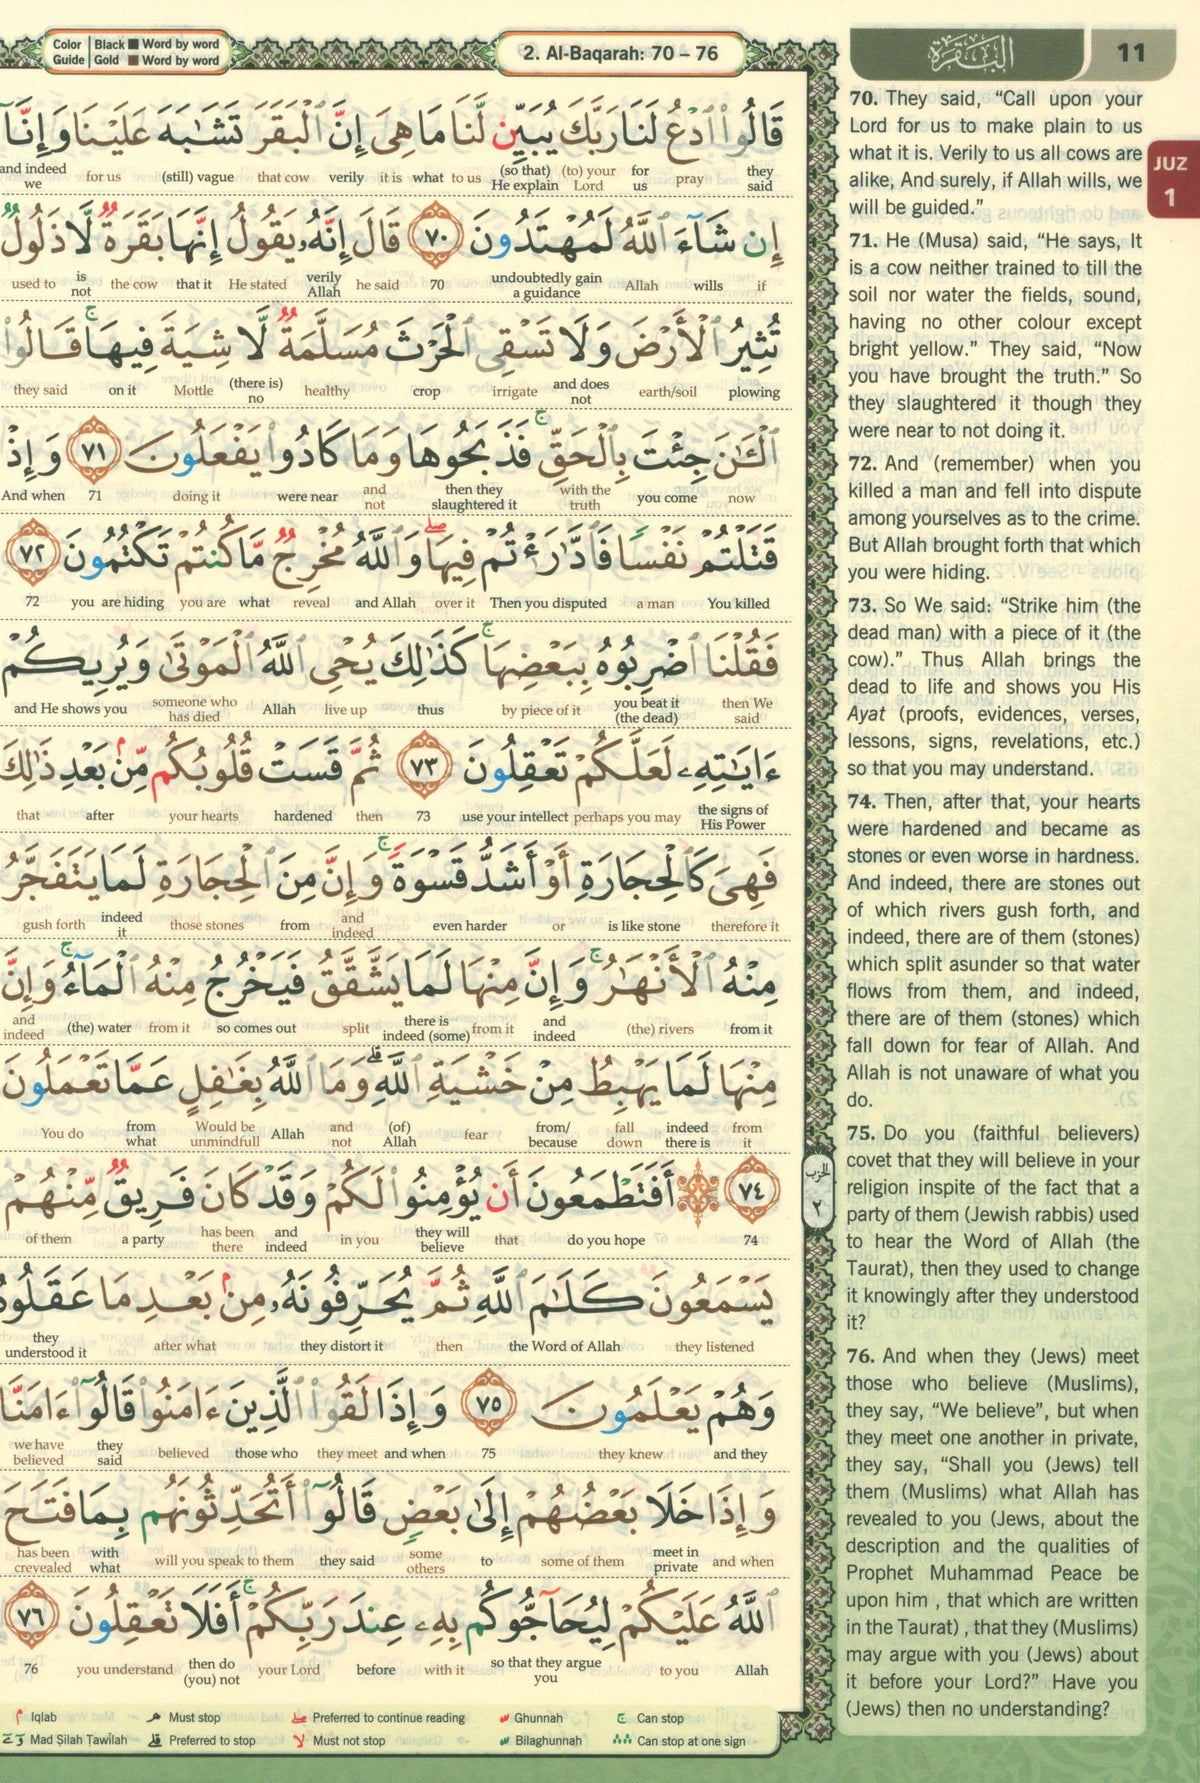 Color Guide | Black ■ Word by word
Gold ■ Word by word
2. Al-Baqarah: 70 – 76
البقرة
11
JUZ
1
قَالُوا۟ ٱدْعُ لَنَا رَبَّكَ يُبَيِّن لَّنَا مَا هِىَ إِنَّ ٱلْبَقَرَ تَشَـٰبَهَ عَلَيْنَا وَإِنَّآ
they said pray for us (to) your Lord (so that) He explain to us what it is verily that cow (still) vague for us and indeed we
إِن شَآءَ ٱللَّهُ لَمُهْتَدُونَ ٧٠ قَالَ إِنَّهُۥ يَقُولُ إِنَّهَا بَقَرَةٌ لَّا ذَلُولٌ
if wills Allah undoubtedly gain a guidance 70 he said verily Allah He stated that it the cow is not used to
تُثِيرُ ٱلْأَرْضَ وَلَا تَسْقِى ٱلْحَرْثَ مُسَلَّمَةٌ لَّا شِيَةَ فِيهَا ۚ قَالُوا۟
plowing earth/soil and does not irrigate crop healthy (there is) no Mottle on it they said
ٱلْـَٔـٰنَ جِئْتَ بِٱلْحَقِّ ۚ فَذَبَحُوهَا وَمَا كَادُوا۟ يَفْعَلُونَ ٧١ وَإِذْ
now you come with the truth then they slaughtered it and not were near doing it 71 And when
قَتَلْتُمْ نَفْسًا فَٱدَّٰرَْٰٔتُمْ فِيهَا ۖ وَٱللَّهُ مُخْرِجٌ مَّا كُنتُمْ تَكْتُمُونَ ٧٢
You killed a man Then you disputed over it and Allah reveal what you are you are hiding 72
فَقُلْنَا ٱضْرِبُوهُ بِبَعْضِهَا ۚ كَذَٰلِكَ يُحْىِ ٱللَّهُ ٱلْمَوْتَىٰ وَيُرِيكُمْ
then We said you beat it (the dead) by piece of it thus live up Allah someone who has died and He shows you
ءَايَـٰتِهِۦ لَعَلَّكُمْ تَعْقِلُونَ ٧٣ ثُمَّ قَسَتْ قُلُوبُكُم مِّنۢ بَعْدِ ذَٰلِكَ
the signs of His Power perhaps you may use your intellect 73 then hardened your hearts after that
فَهِىَ كَٱلْحِجَارَةِ أَوْ أَشَدُّ قَسْوَةً ۚ وَإِنَّ مِنَ ٱلْحِجَارَةِ لَمَا يَتَفَجَّرُ
therefore it is like stone or even harder and indeed from those stones indeed it gush forth
مِنْهُ ٱلْأَنْهَـٰرُ ۚ وَإِنَّ مِنْهَا لَمَا يَشَّقَّقُ فَيَخْرُجُ مِنْهُ ٱلْمَآءُ ۚ وَإِنَّ
from it (the) rivers and indeed from it there is indeed (some) split so comes out from it (the) water and indeed
مِنْهَا لَمَا يَهْبِطُ مِنْ خَشْيَةِ ٱللَّهِ ۗ وَمَا ٱللَّهُ بِغَـٰفِلٍ عَمَّا تَعْمَلُونَ
from it indeed there is fall down from/ because fear (of) Allah and not Allah Would be unmindfull from what You do
٧٤ ۞ أَفَتَطْمَعُونَ أَن يُؤْمِنُوا۟ لَكُمْ وَقَدْ كَانَ فَرِيقٌ مِّنْهُمْ
74 do you hope that they will believe in you and indeed has been there a party of them
يَسْمَعُونَ كَلَـٰمَ ٱللَّهِ ثُمَّ يُحَرِّفُونَهُۥ مِنۢ بَعْدِ مَا عَقَلُوهُ
they listened the Word of Allah then they distort it after what they understood it
وَهُمْ يَعْلَمُونَ ٧٥ وَإِذَا لَقُوا۟ ٱلَّذِينَ ءَامَنُوا۟ قَالُوٓا۟ ءَامَنَّا
and they they knew 75 and when they meet those who believed they said we have believed
وَإِذَا خَلَا بَعْضُهُمْ إِلَىٰ بَعْضٍ قَالُوٓا۟ أَتُحَدِّثُونَهُم بِمَا فَتَحَ
and when meet in private some of them to some others they said will you speak to them with what has been crevealed
ٱللَّهُ عَلَيْكُمْ لِيُحَآجُّوكُم بِهِۦ عِندَ رَبِّكُمْ ۚ أَفَلَا تَعْقِلُونَ ٧٦
Allah to you so that they argue you with it before your Lord then do (you) not you understand 76
الحزب
٢
70. They said, “Call upon your
Lord for us to make plain to us
what it is. Verily to us all cows are
alike, And surely, if Allah wills, we
will be guided.”
71. He (Musa) said, “He says, It
is a cow neither trained to till the
soil nor water the fields, sound,
having no other colour except
bright yellow.” They said, “Now
you have brought the truth.” So
they slaughtered it though they
were near to not doing it.
72. And (remember) when you
killed a man and fell into dispute
among yourselves as to the crime.
But Allah brought forth that which
you were hiding.
73. So We said: “Strike him (the
dead man) with a piece of it (the
cow).” Thus Allah brings the
dead to life and shows you His
Ayat (proofs, evidences, verses,
lessons, signs, revelations, etc.)
so that you may understand.
74. Then, after that, your hearts
were hardened and became as
stones or even worse in hardness.
And indeed, there are stones out
of which rivers gush forth, and
indeed, there are of them (stones)
which split asunder so that water
flows from them, and indeed,
there are of them (stones) which
fall down for fear of Allah. And
Allah is not unaware of what you
do.
75. Do you (faithful believers)
covet that they will believe in your
religion inspite of the fact that a
party of them (Jewish rabbis) used
to hear the Word of Allah (the
Taurat), then they used to change
it knowingly after they understood
it?
76. And when they (Jews) meet
those who believe (Muslims),
they say, “We believe”, but when
they meet one another in private,
they say, “Shall you (Jews) tell
them (Muslims) what Allah has
revealed to you (Jews, about the
description and the qualities of
Prophet Muhammad Peace be
upon him , that which are written
in the Taurat) , that they (Muslims)
may argue with you (Jews) about
it before your Lord?” Have you
(Jews) then no understanding?
Iqlab Must stop Preferred to continue reading Ghunnah Can stop
Mad Ṣilah Ṭawīlah Preferred to stop Must not stop Bilaghunnah Can stop at one sign